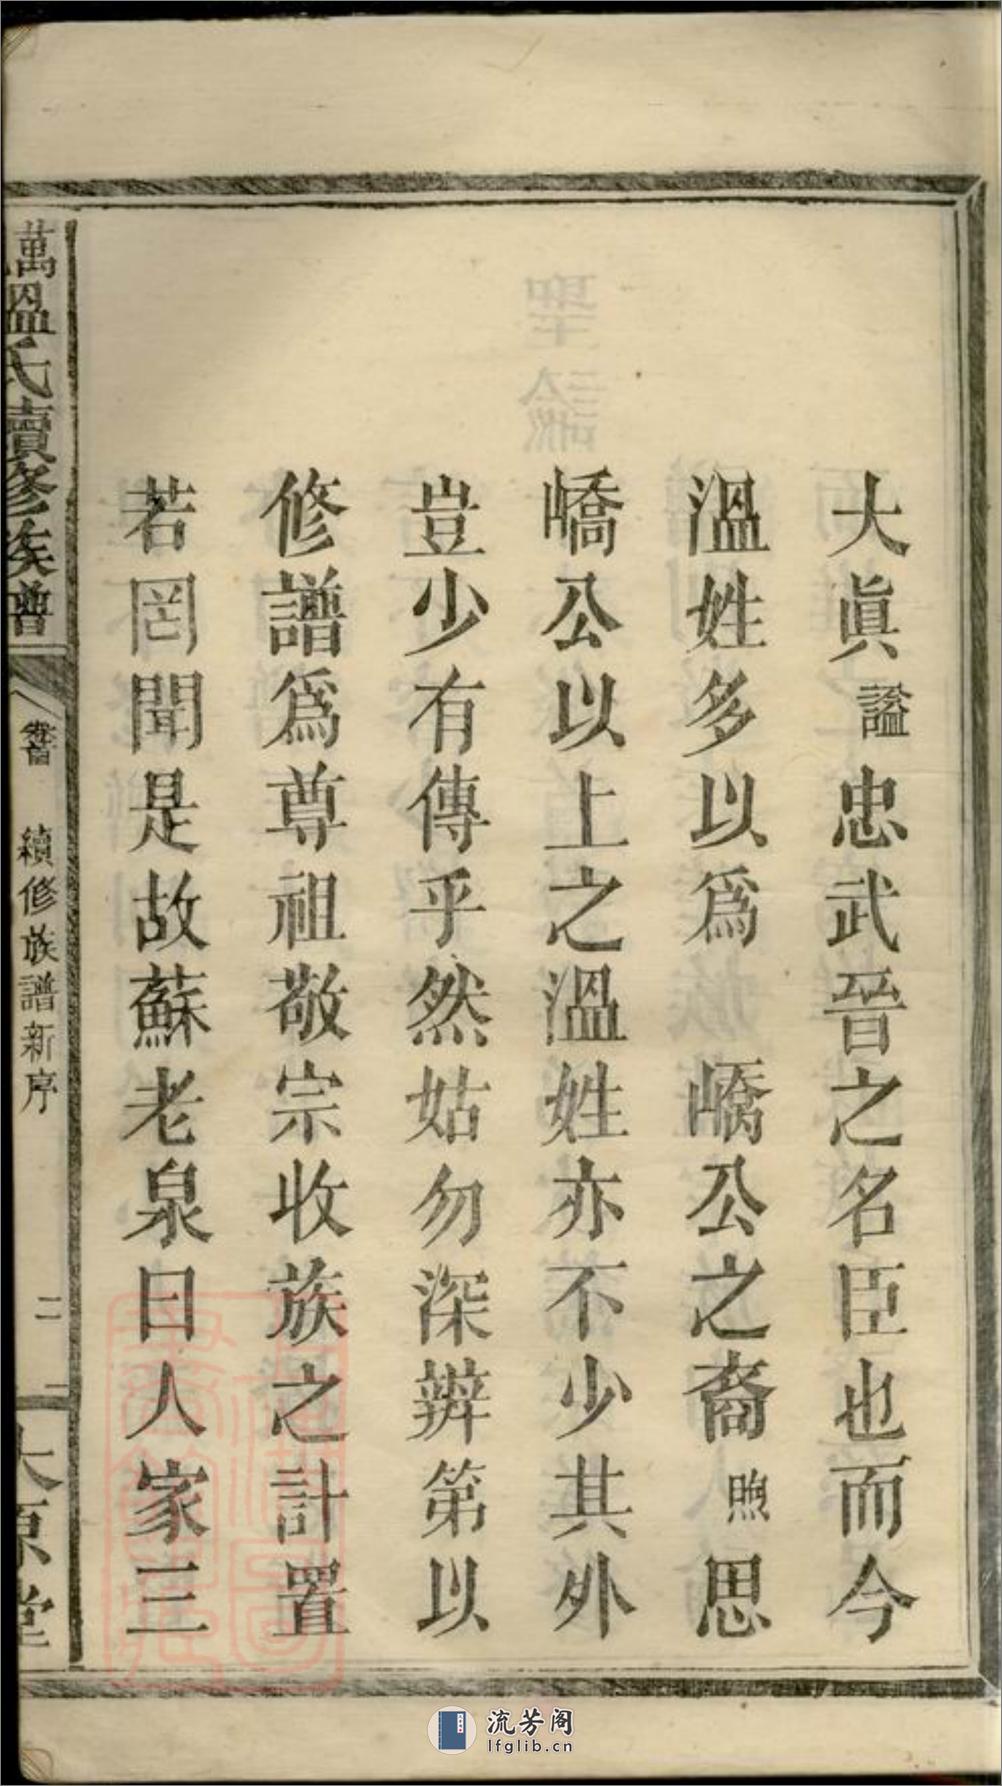 大眞謚忠武晉之名臣也而今
溫姓多以爲　嶠公之裔煦思
嶠公以上之溫姓亦不少其外
豈少有傳乎然姑勿深辨第以
修譜爲尊祖敬宗收族之計置
若罔聞是故蘇老泉曰人家三
萬溫氏續修族譜
續修族譜新序
二
太原堂
流芳阁
lfglib.cn